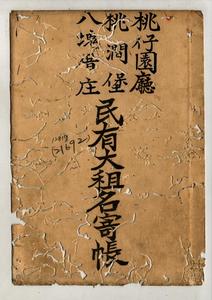 桃仔園廳
桃澗堡
八塊厝庄
民有大租名寄帳